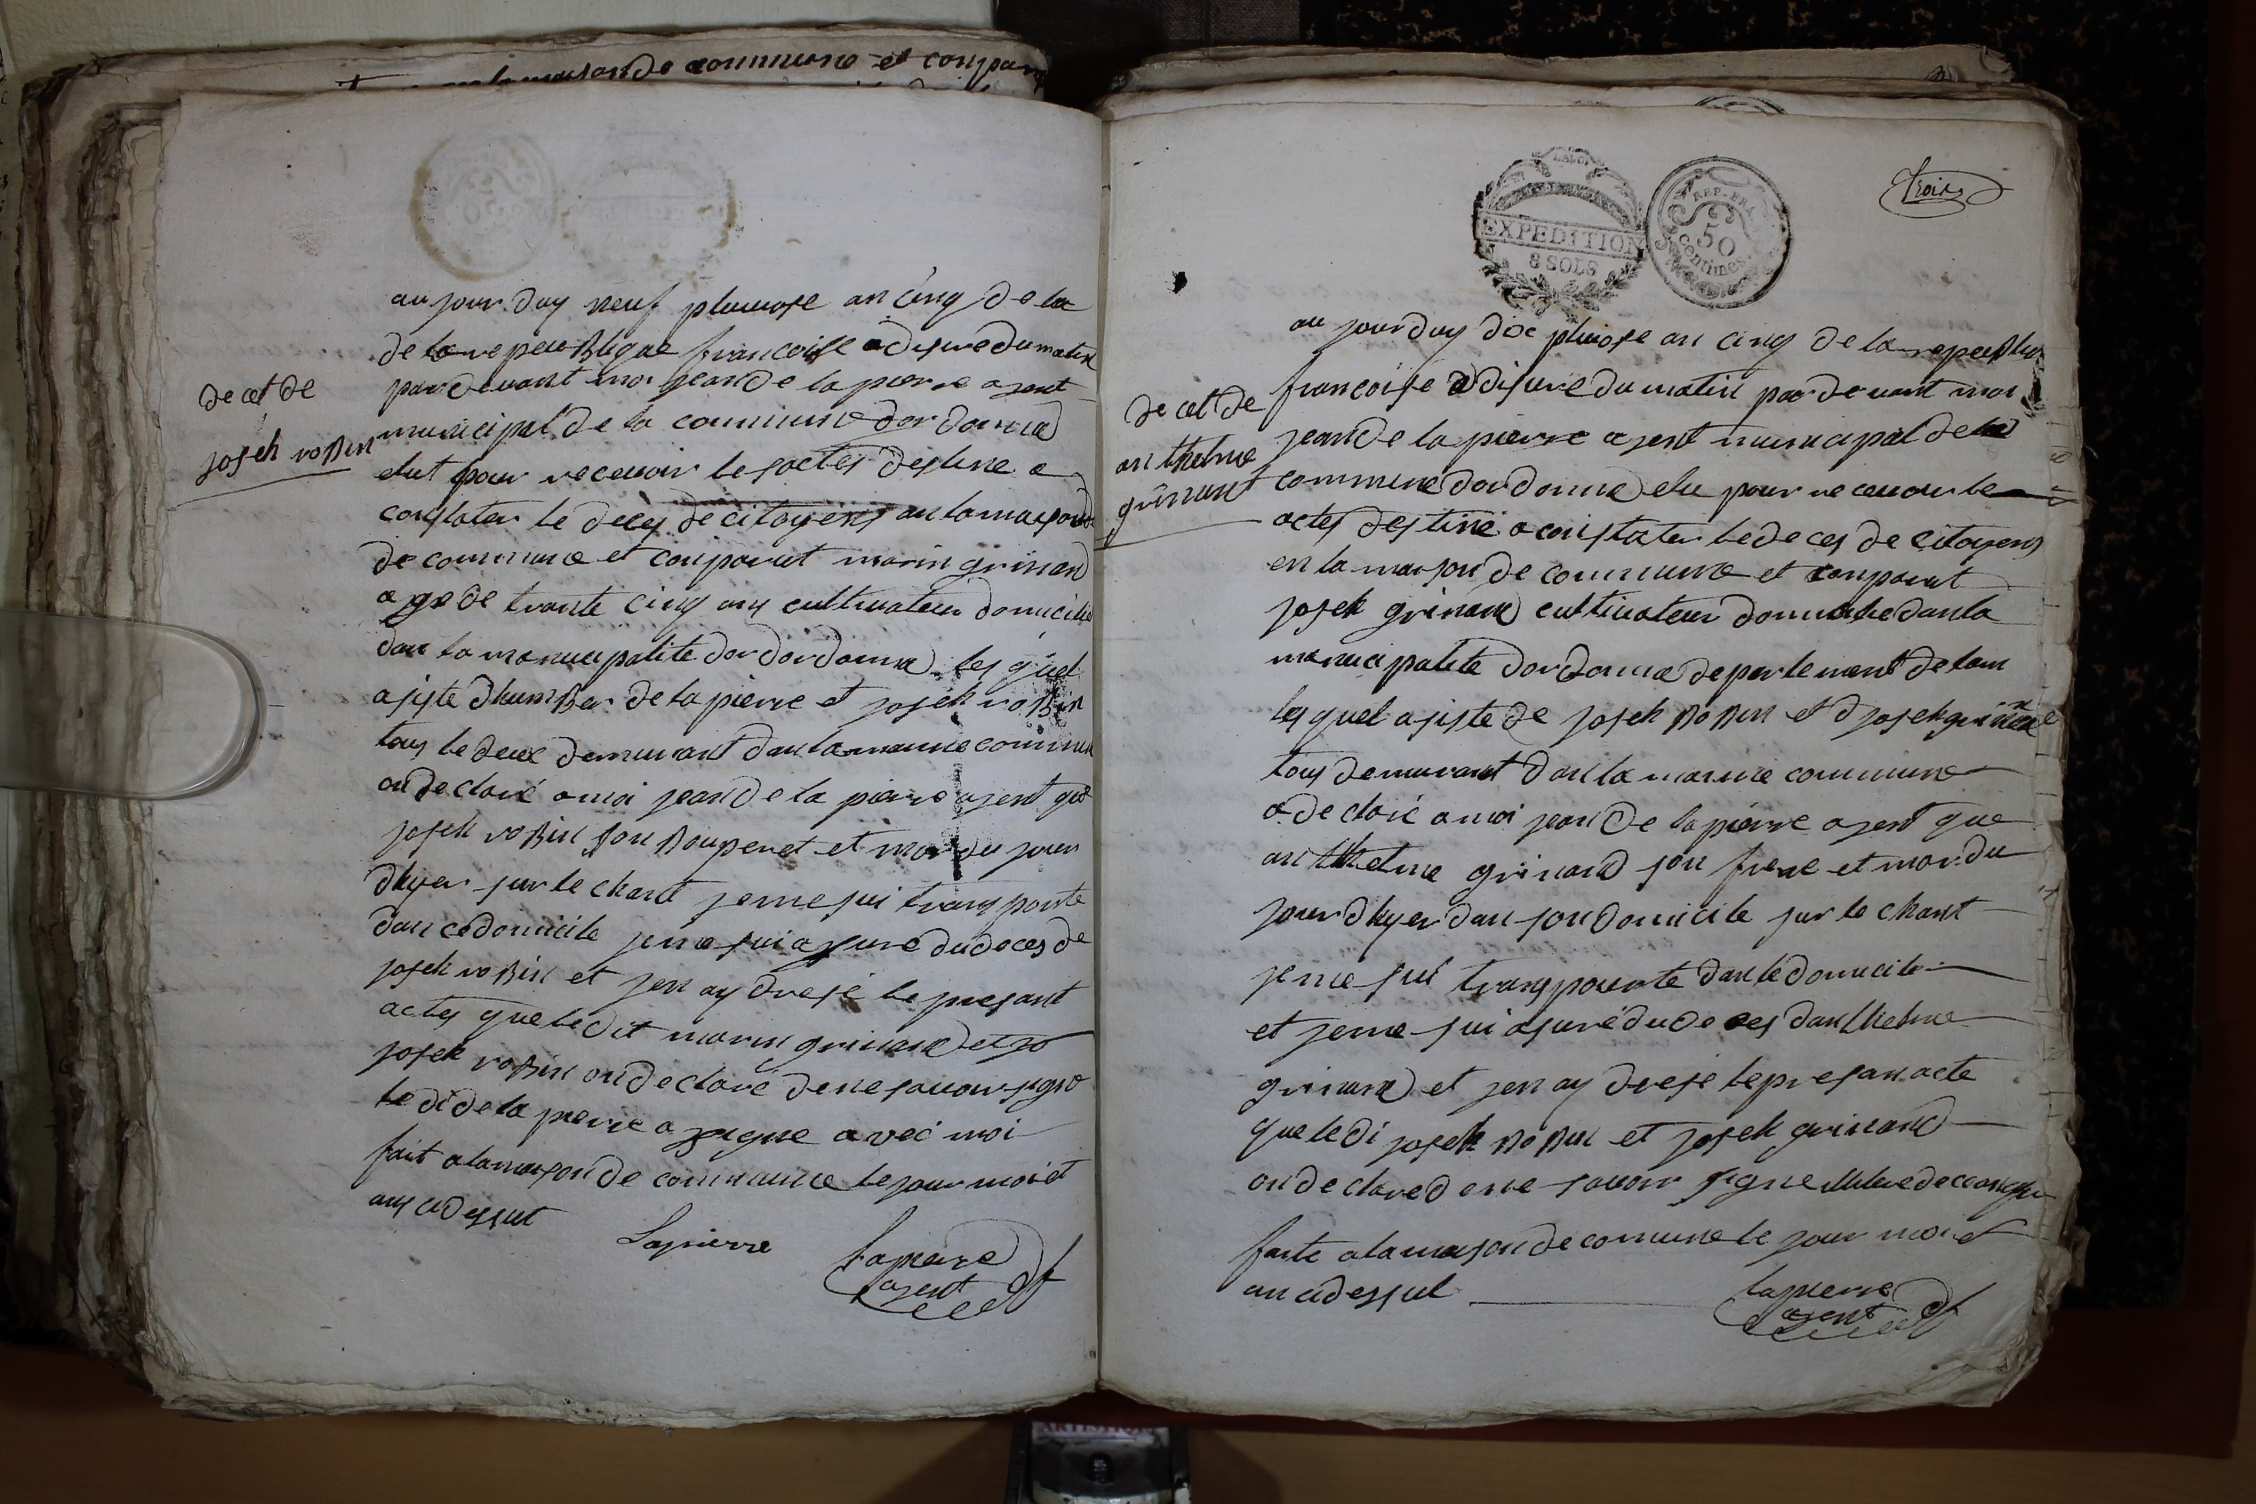 de la maison de commune et compar
de cet de
josek robin
au jour duy neuf pluviose an cinq de la
de la repeublique francoisse a dis ure du matin
par devant moi jean de la pierre agent
municipal de la commune dordonna
elut pour recevoir le sactes destine a
constater le deces de citoyens an la maison
de commune et conparut marin grinand
age de trante cinq ans cultivateur domicilie
dan la manucipalite dor dordonna les quel
asiste dhumber de la pierre et josek robin
tous le deux demurant dan la maime commune
on de claré a moi jean de la pierre agent que
josek robin son bouperet et mor du jour
dhyer sur le chant je me sui transporte
dan ce domicile je me sui asure du deces de
josek robin et jen ay dresé le presant
actes que le dit marin grinand et jo
josek robin on de claré de ne savoir signe
le di de la pierre a signe avec moi
fait a la maison de commune le jour moi et
ans ci dessut
Lapierre
lapierre
agent
trois
EXPEDITION
8 SOLS
REP. FRA.
50
centimes
de cet de
an thelme
grinant
au jour duy dix pluviose an cinq de la repeublic
francoise a dis ure du matin par devant moi
jean de la pierre agent municipal de la
commune dordonna elu pour recevoir le
actes destiné a constater le de ces de citoyens
en la maison de commune et conparut
josek grinand cultivateur domicilie dan la
manucipalite dordonna departement de lain
les quel asiste de josek robin et d josek grinand
tous demurant dan la maime commune
a de claré a moi jean de la pierre agent que
an thelme grinand son frere et mor du
jour dhyer dan son domicile sur le chant
je me sui transpourte dan le domicile
et je me sui asuré du de ces dan thelme
grinand et jen ay dresé le presan acte
que le di josek robin et josek grinand
on de clare de ne savoir signe de ce
faite a la maison de comune le jour moi et
an ci dessut
lapierre
agent